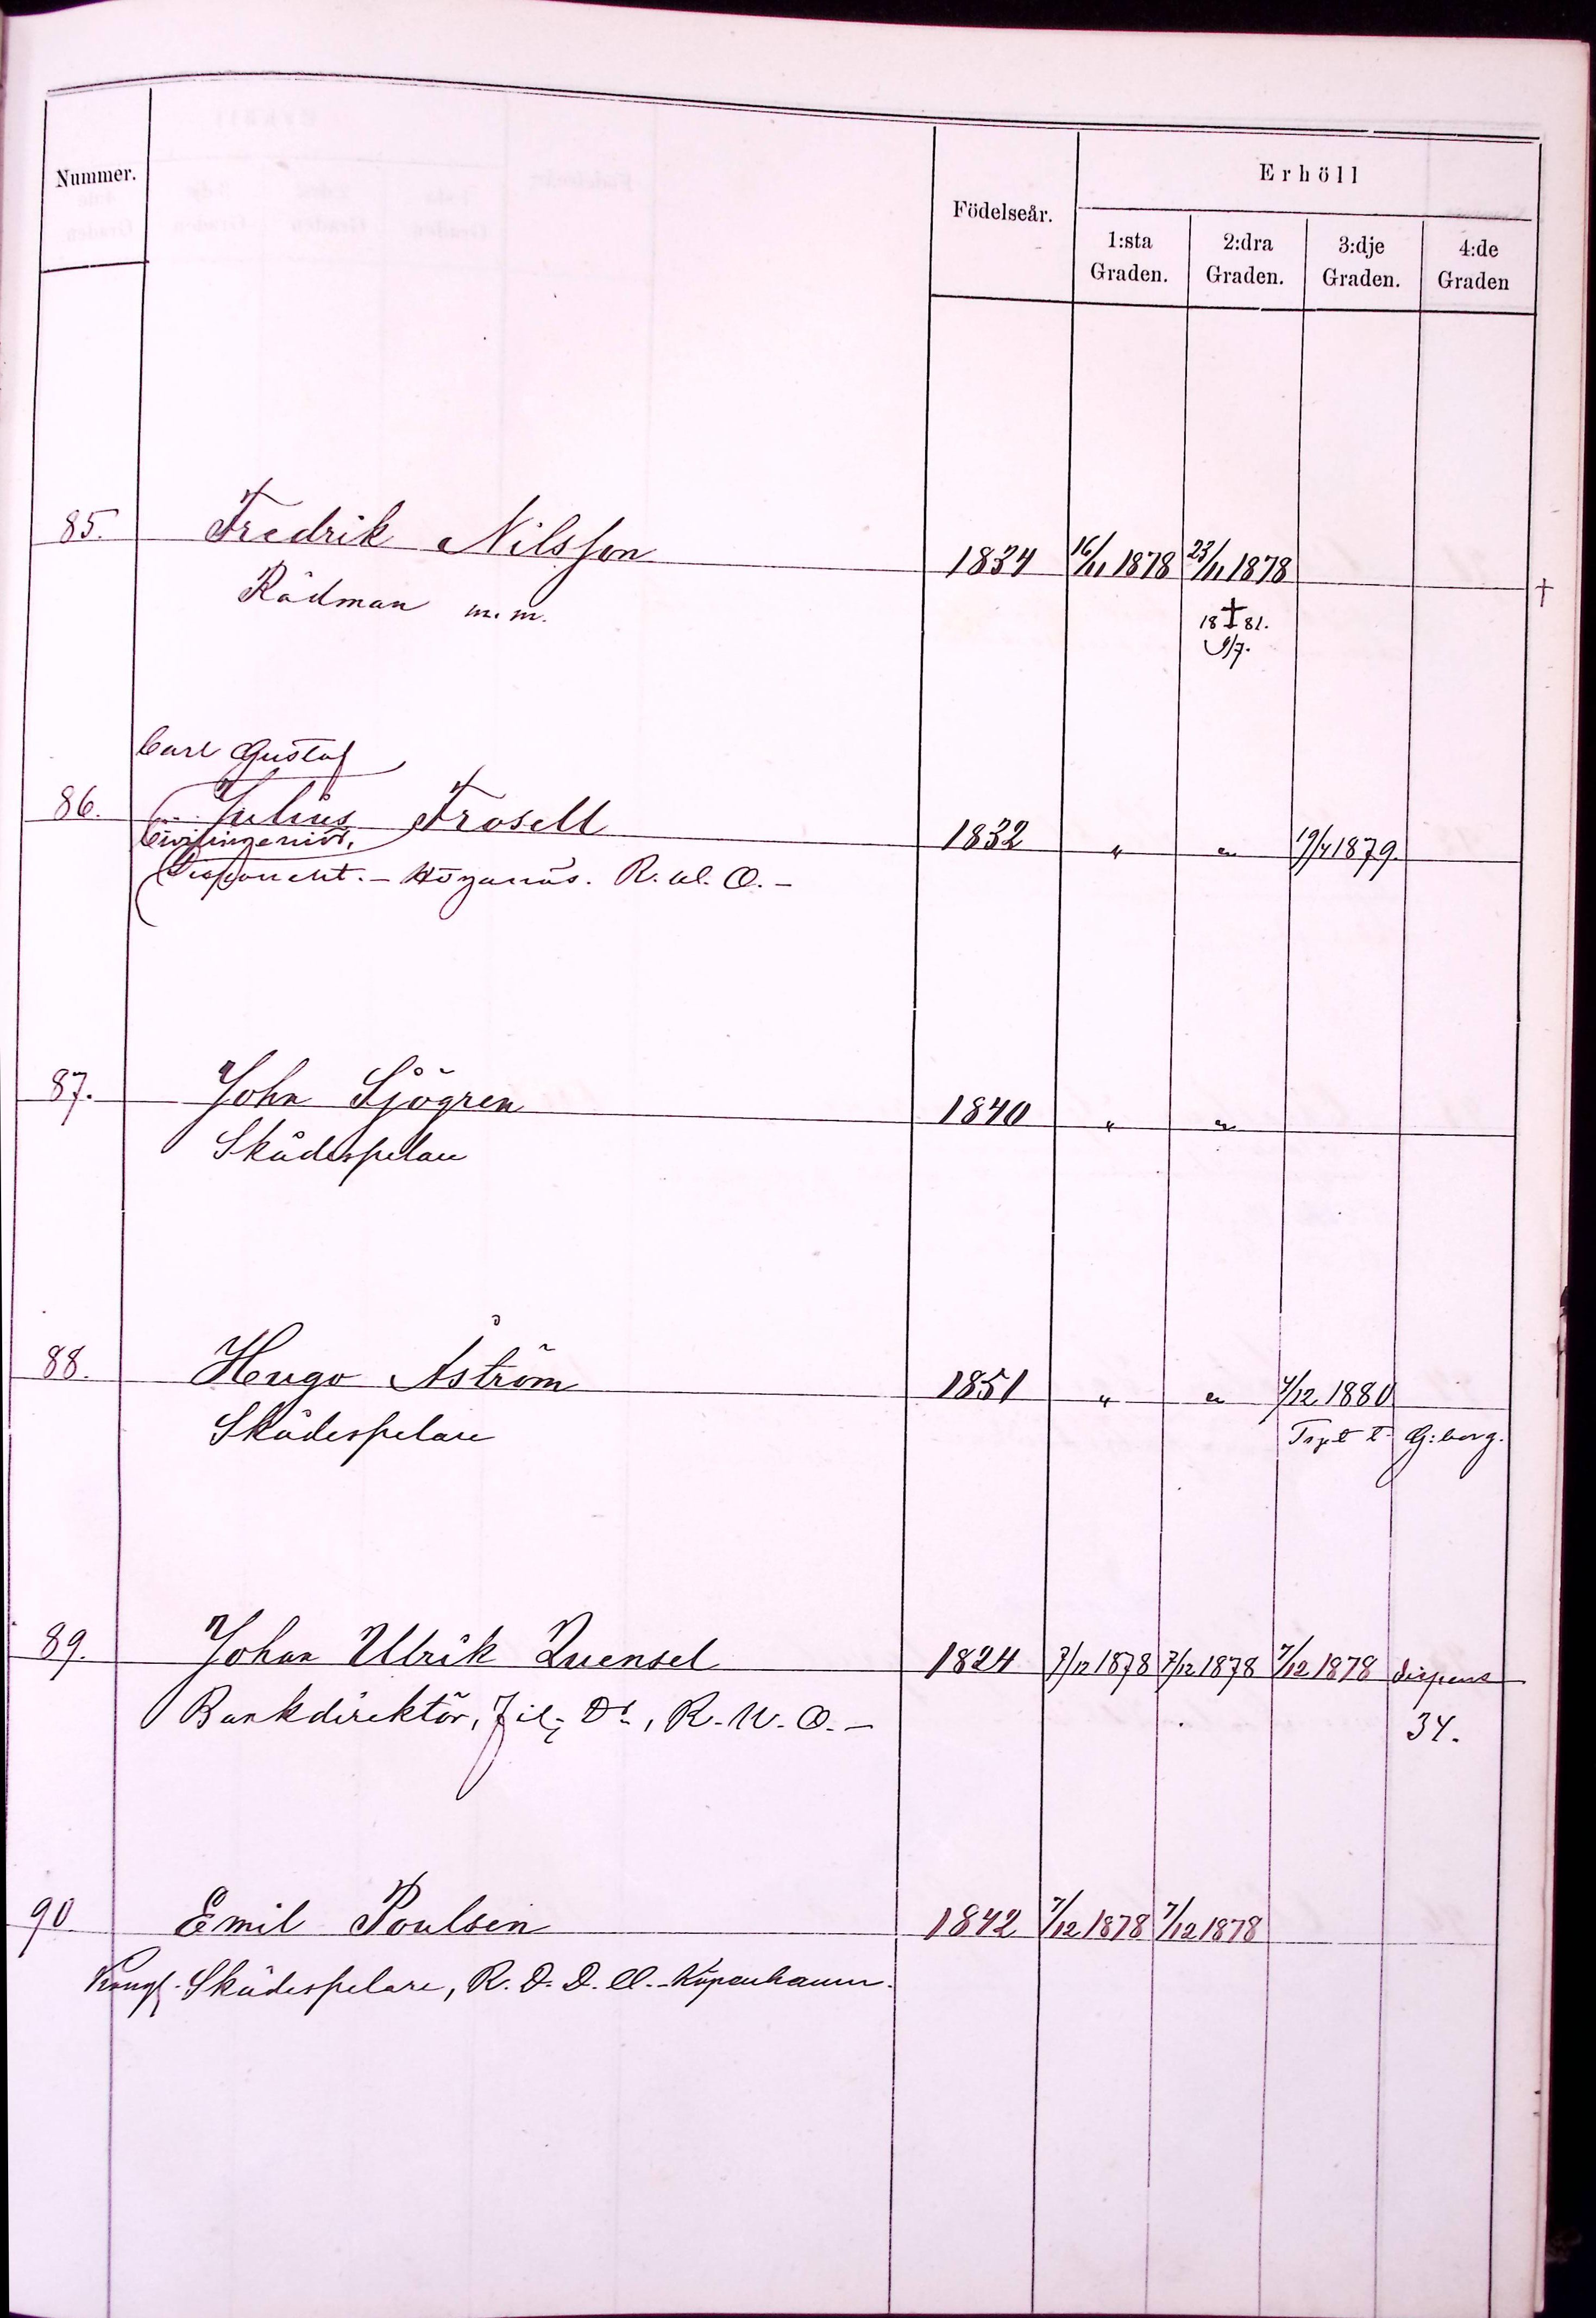 Nummer.
Födelseår.
Erhöll
1:sta Graden.
2:dra Graden.
3:dje Graden.
4:de Graden
85. Fredrik Nilsson 1834 16/11 1878 23/11 1878 †
Rådman m.m. 18 † 81.
9/7.
Carl Gustaf
86. Julius Frosell 1832 " " 19/4 1879.
Civilingeniör,
Disponent. – Höganäs. R. W. O. –
87. John Sjögren 1840 " "
Skådespelare
88. Hugo Åström 1851 " " 7/12 1880
Skådespelare t. G:borg.
89. Johan Ulrik Quensel 1824 7/12 1878 7/12 1878 7/12 1878 dispens
Bankdirektör, Fil: Dr, R. W. O. – 34.
90 Emil Poulsen 1842 7/12 1878 7/12 1878
Kongl. Skådespelare, R. D. D. – Köpenhamn.